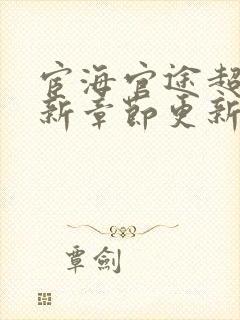 宦海官途超
新章節更新
覃劍